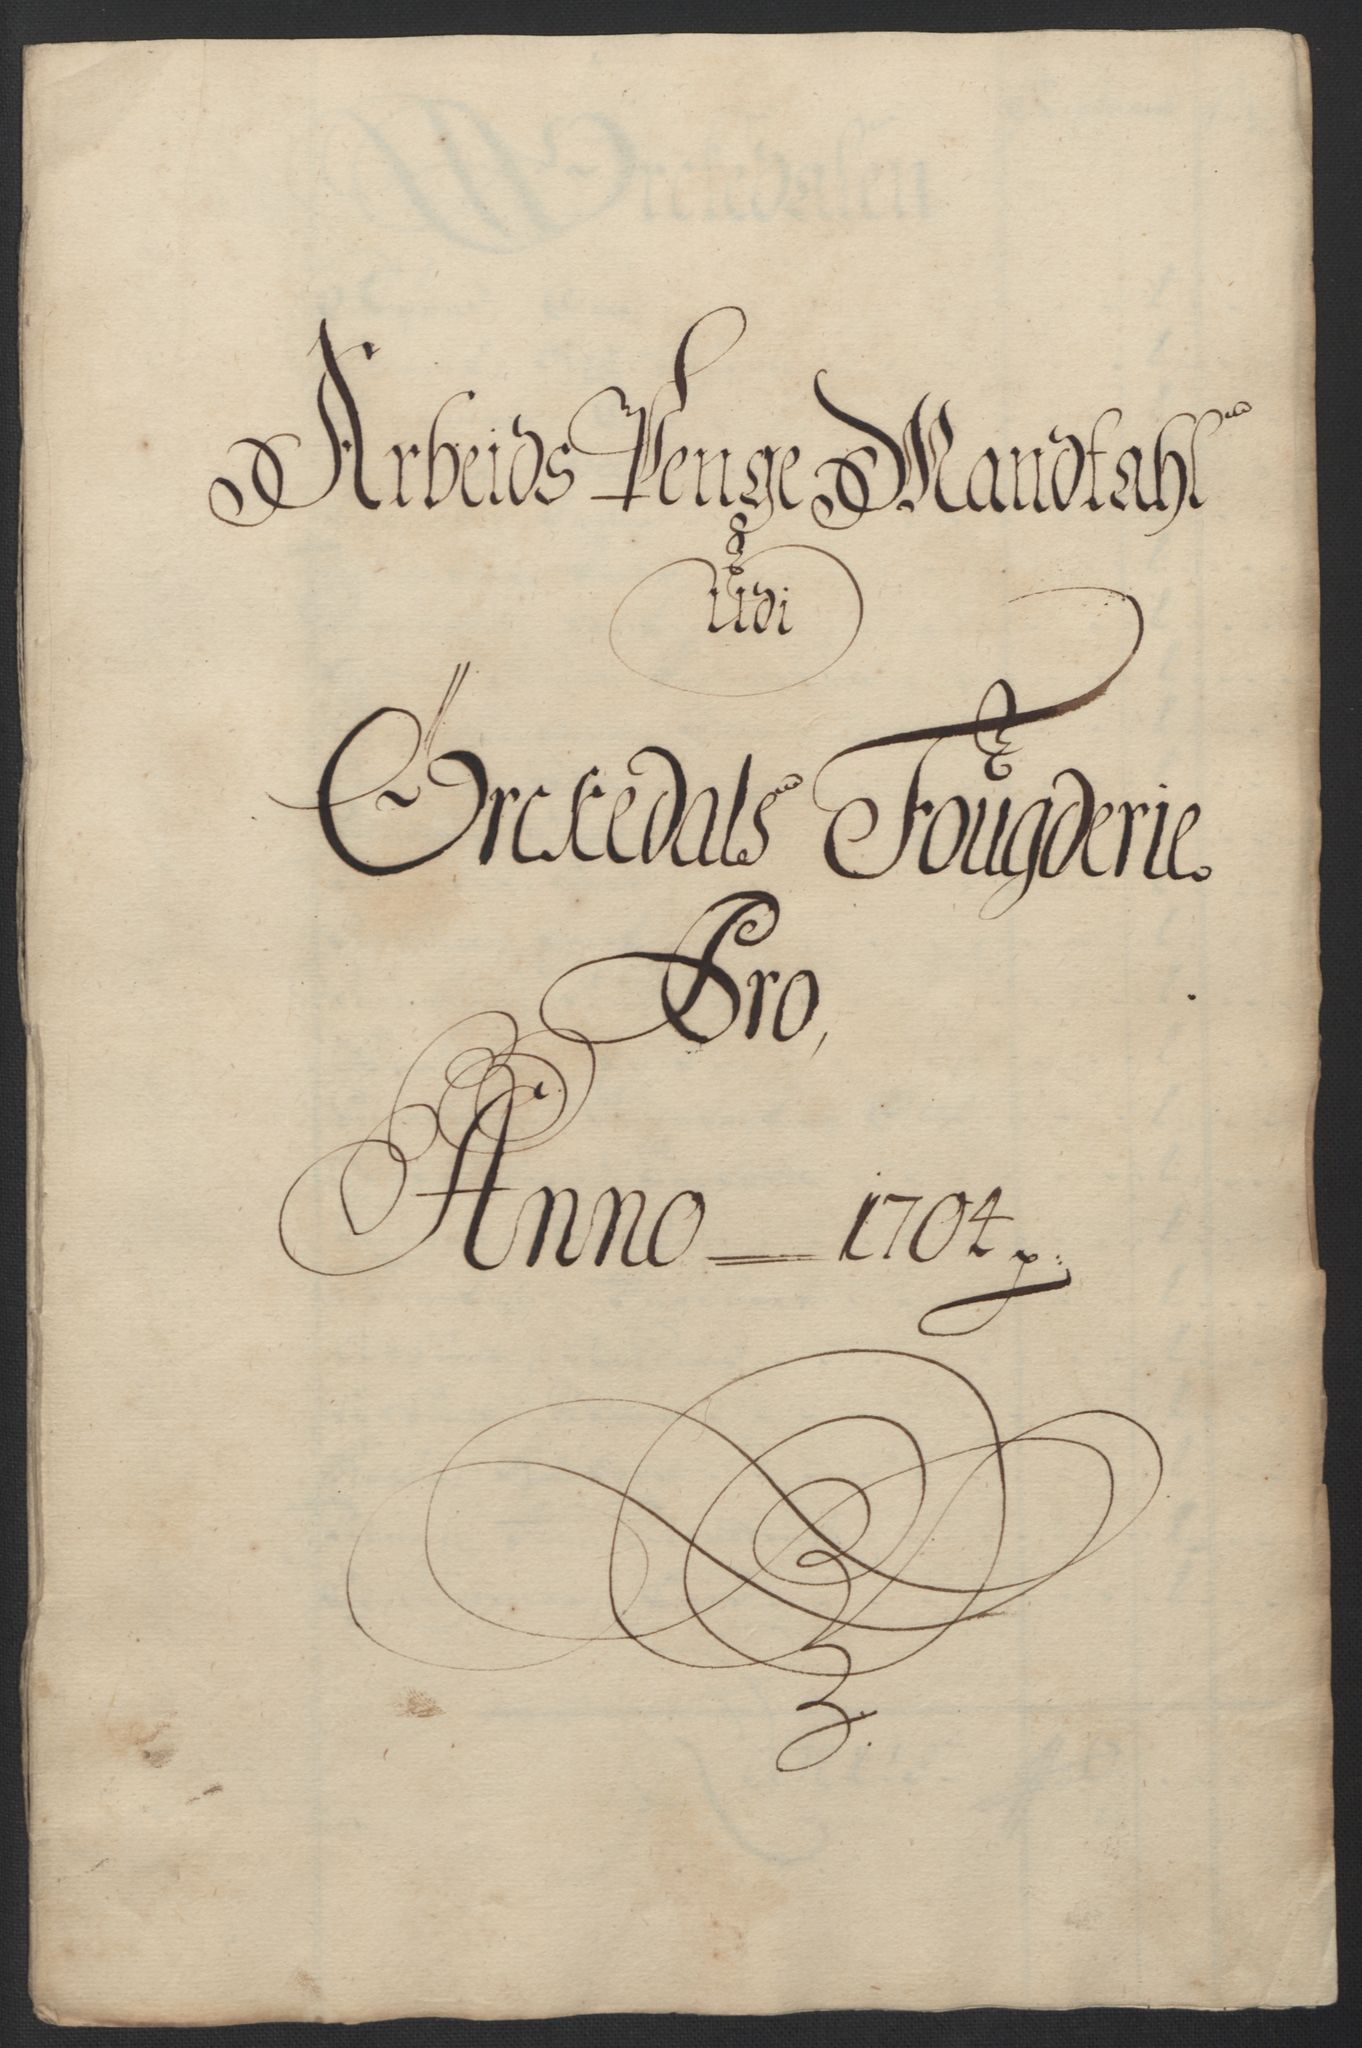 Arbeids Penge Mandtahl
Udi
Orckedals Fougderie.
Pro,
Anno 1704